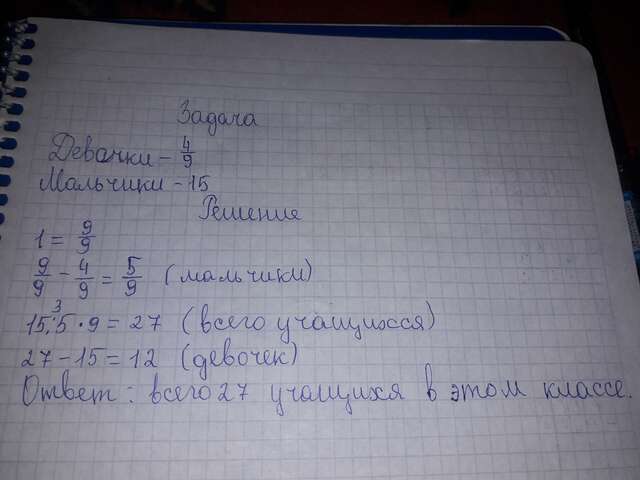 Задача
Девочки - 4/9
Мальчики - 15
Решение
1 = 9/9
9/9 - 4/9 = 5/9 (мальчики)
3
15:5·9 = 27 (всего учащихсся)
27 - 15 = 12 (девочек)
Ответ: всего 27 учащихся в этом классе.